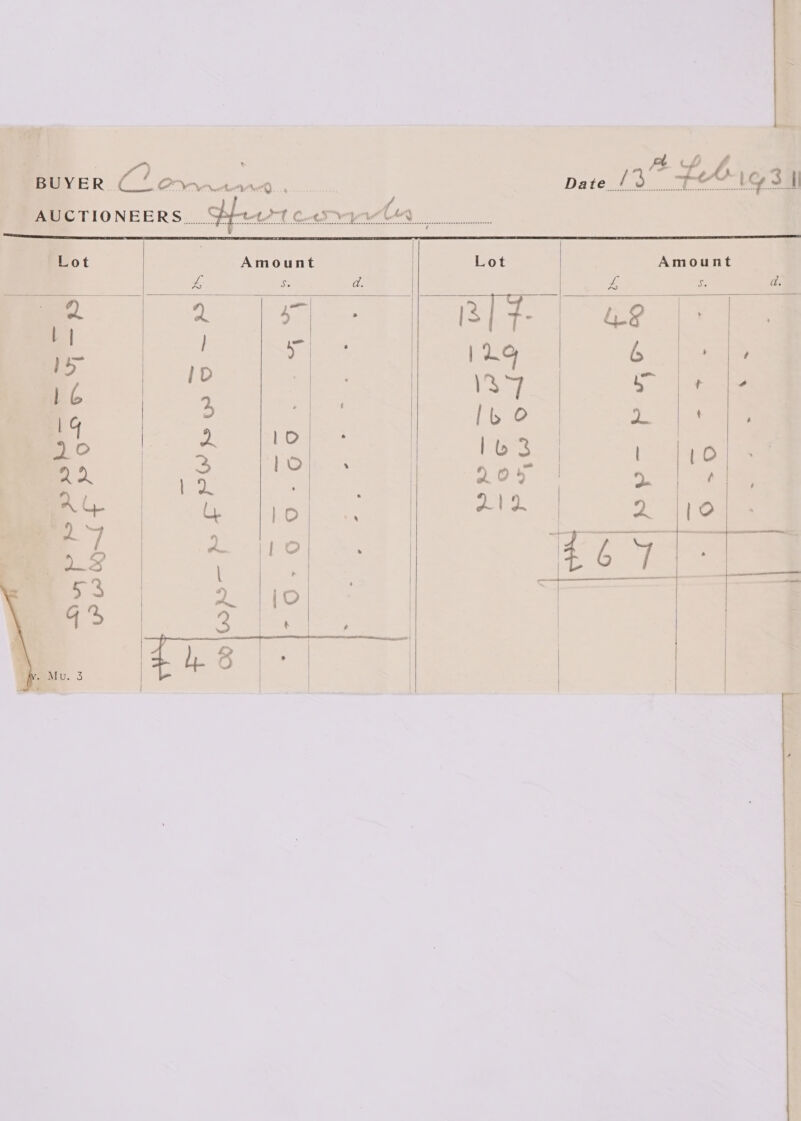 BUYER
Date 13th Feb 1931
AUCTIONEERS Hurcombs
Lot Amount Lot Amount
£ s. d. £ s. d.
2 2 5 · B/F- 48 · ·
11 1 5 · 129 6 · ·
15 10 · · 137 5 · ·
16 3 · · 160 2 · ·
19 2 10 · 163 1 10 ·
20 3 10 · 205 2 · ·
22 12 · · 212 2 10 ·
24 4 10 · £67 ·
27 2 10 ·
28 1 · ·
53 2 10 ·
93 3 · ·
£48 ·
Mu. 3